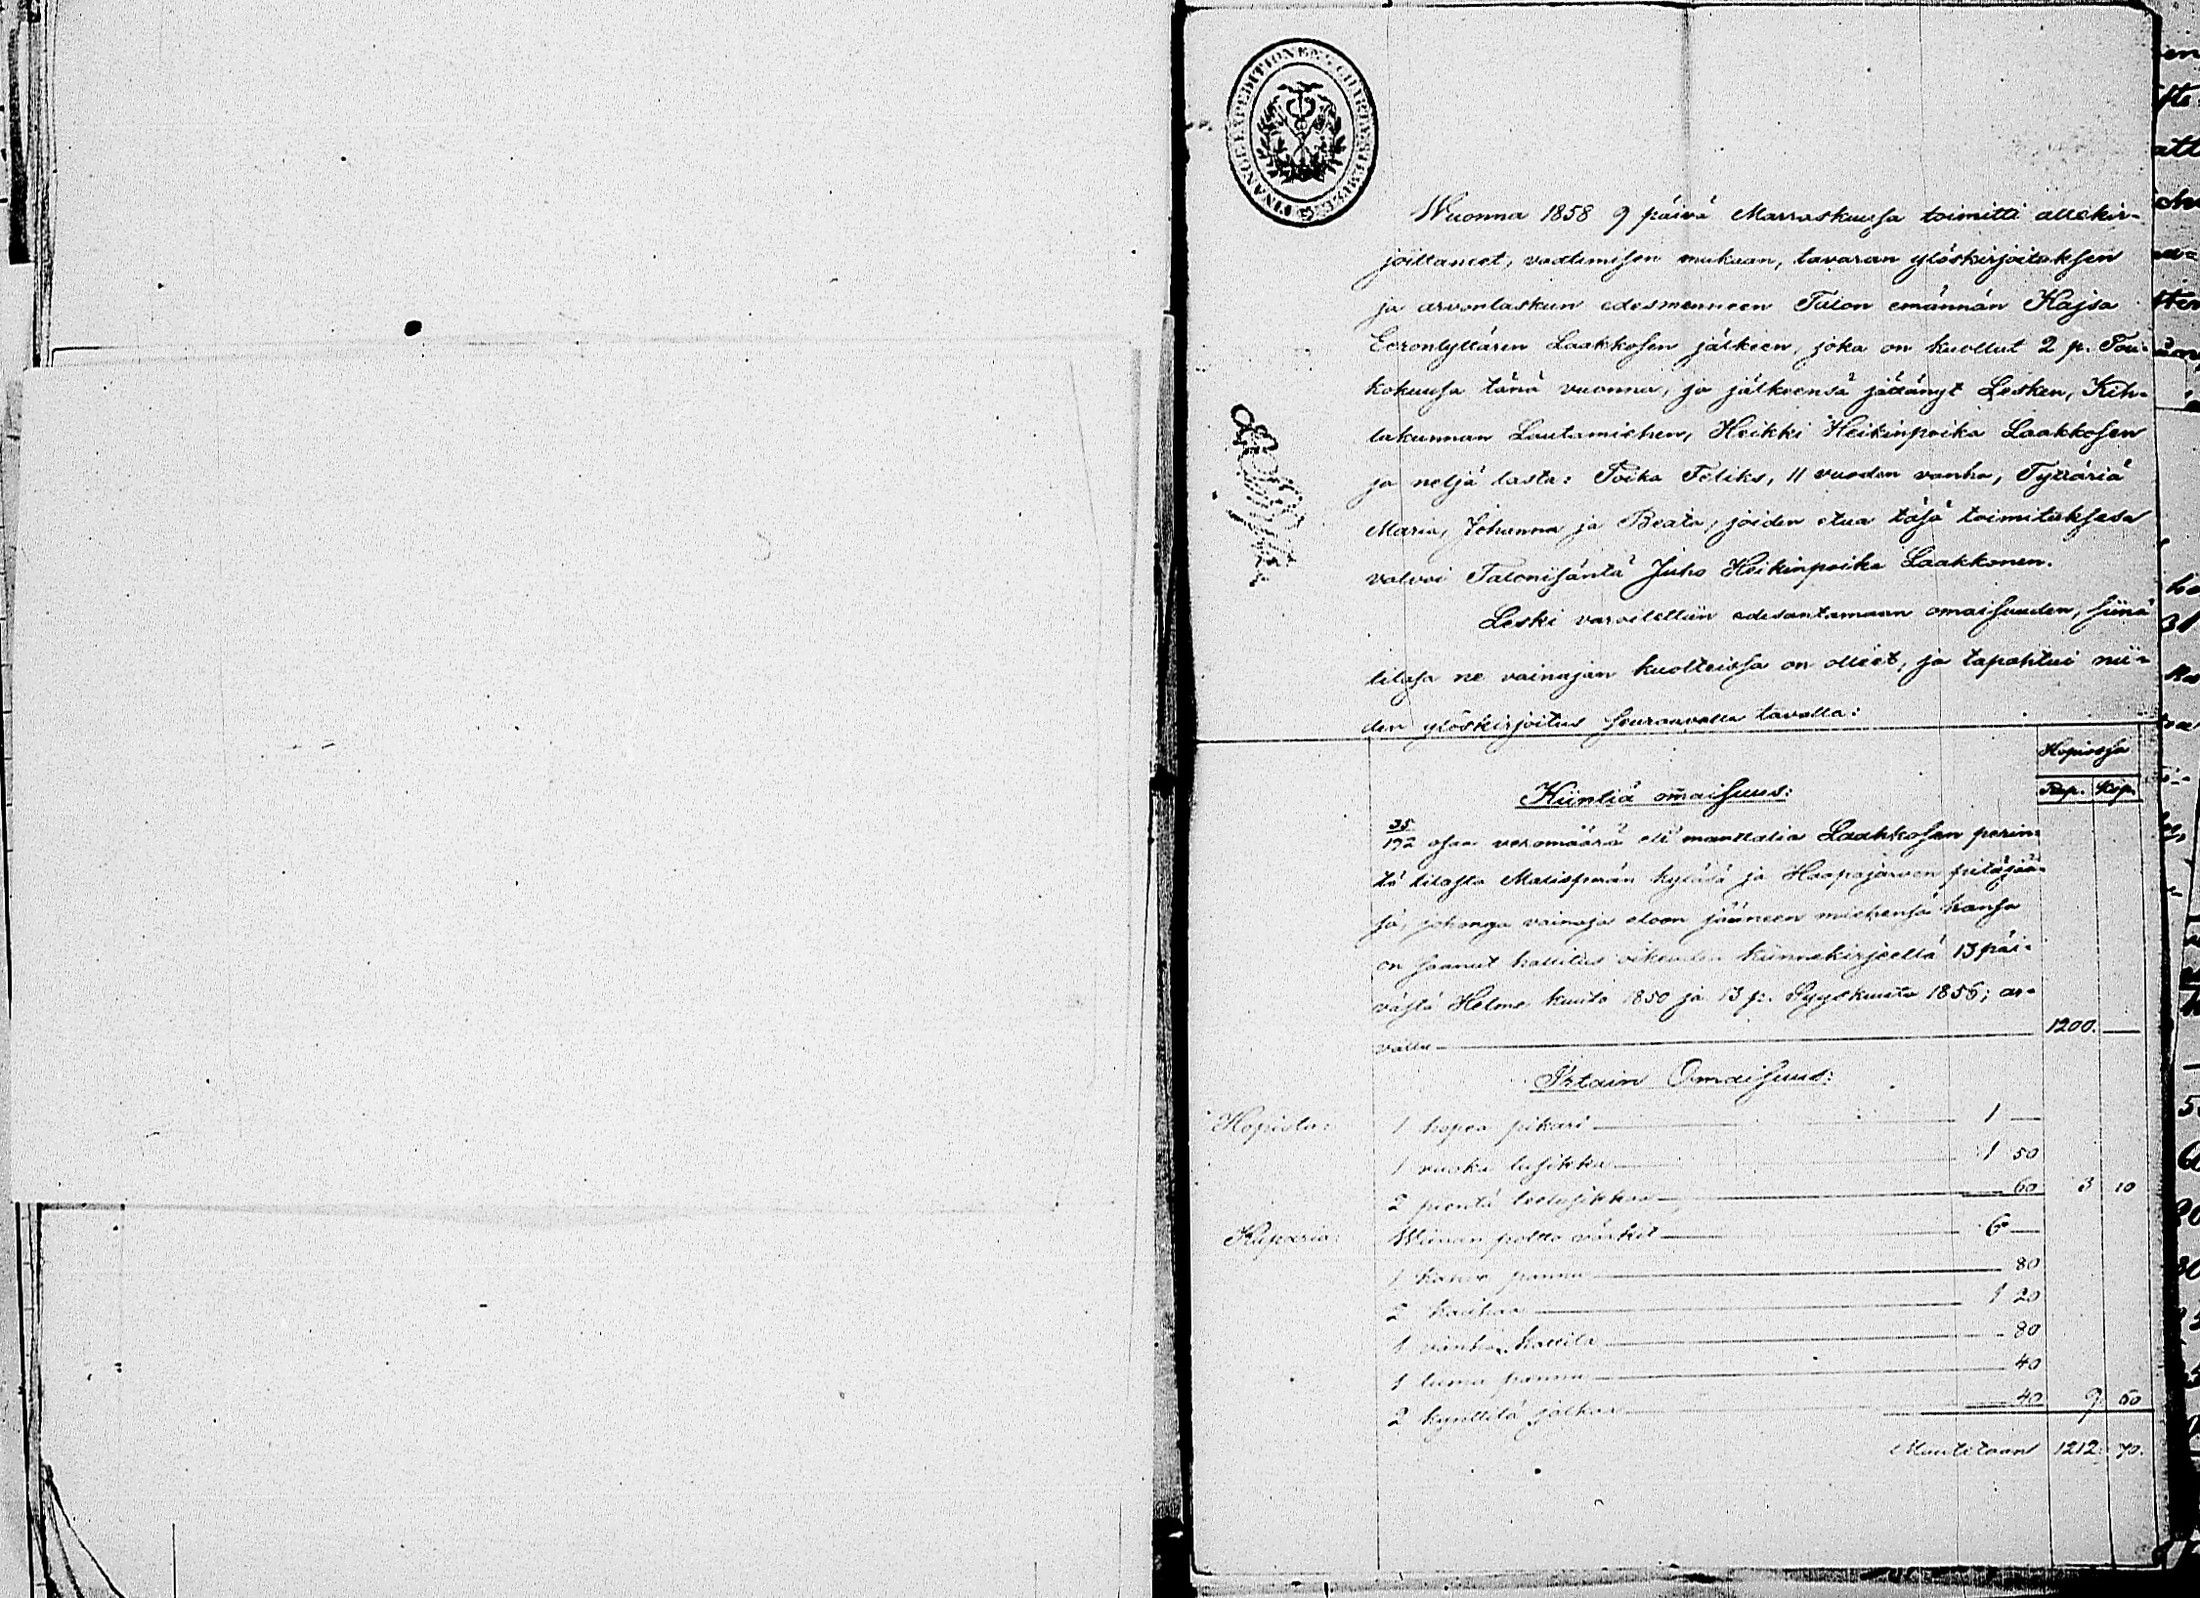 FINANCE EXPEDITIONENS
Wuonna 1858 9 päivä Marraskuussa toimitti allekir-
joittaneet, vaatimisen mukaan, tavaran ylöskirjoituksen
ja arvonlaskun edesmenneen Talon emännän Kajsa
Eerontyttären Laakkosen jälkeen, joka on kuollut 2 p. Tou-
kokuusa tänä vuonna, ja jälkeensä jättänyt Lesken, Kih-
lakunnan Lautamiehen, Heikki Heikinpoika Laakkosen
ja neljä lasta: Poika Feliks, 11 vuoden vanha, Tyttäriä
Maria, Johanna ja Beata, joiden etua täsä toimituksesa
valvoi Talonisäntä Juho Heikinpoika Laakkonen.
Leski varoitettiin edesantamaan omaisuuden, siinä
tilasa ne vainajan kuolteissa on olleet, ja tapahtui nii-
den ylöskirjoitus seuraavalla tavalla:
Hopiossa
Rup. Kop.
Kiintiä omaisuus:
35/192 osaa veromäärä eli manttalia Laakkosen perin-
tö tilasta Matisperän kyläsä ja Haapajärven pitäjää-
sä, johonga vainaja eloon jääneen miehensä kansa
on saanut hallitus oikeuden kiinnekirjoilla 13 päi-
västä Helme kuuta 1850 ja 13 p. Syyskuuta 1856; ar-
valla 1200. —
Irtain Omaisuus:
Hopiata: 1 hopea pikari 1 —
1 ruoka lusikka 1 50
2 pientä teelusikkaa 60 3 10
Kuparia: Wiinan poltto värkit 6 —
1 kahve pannu 80
2 kauhaa 1 20
1 vanha kattila 80
1 pannu 40
2 kynttilä jalkaa 40 9 60
Muutetaan 1212. 70.